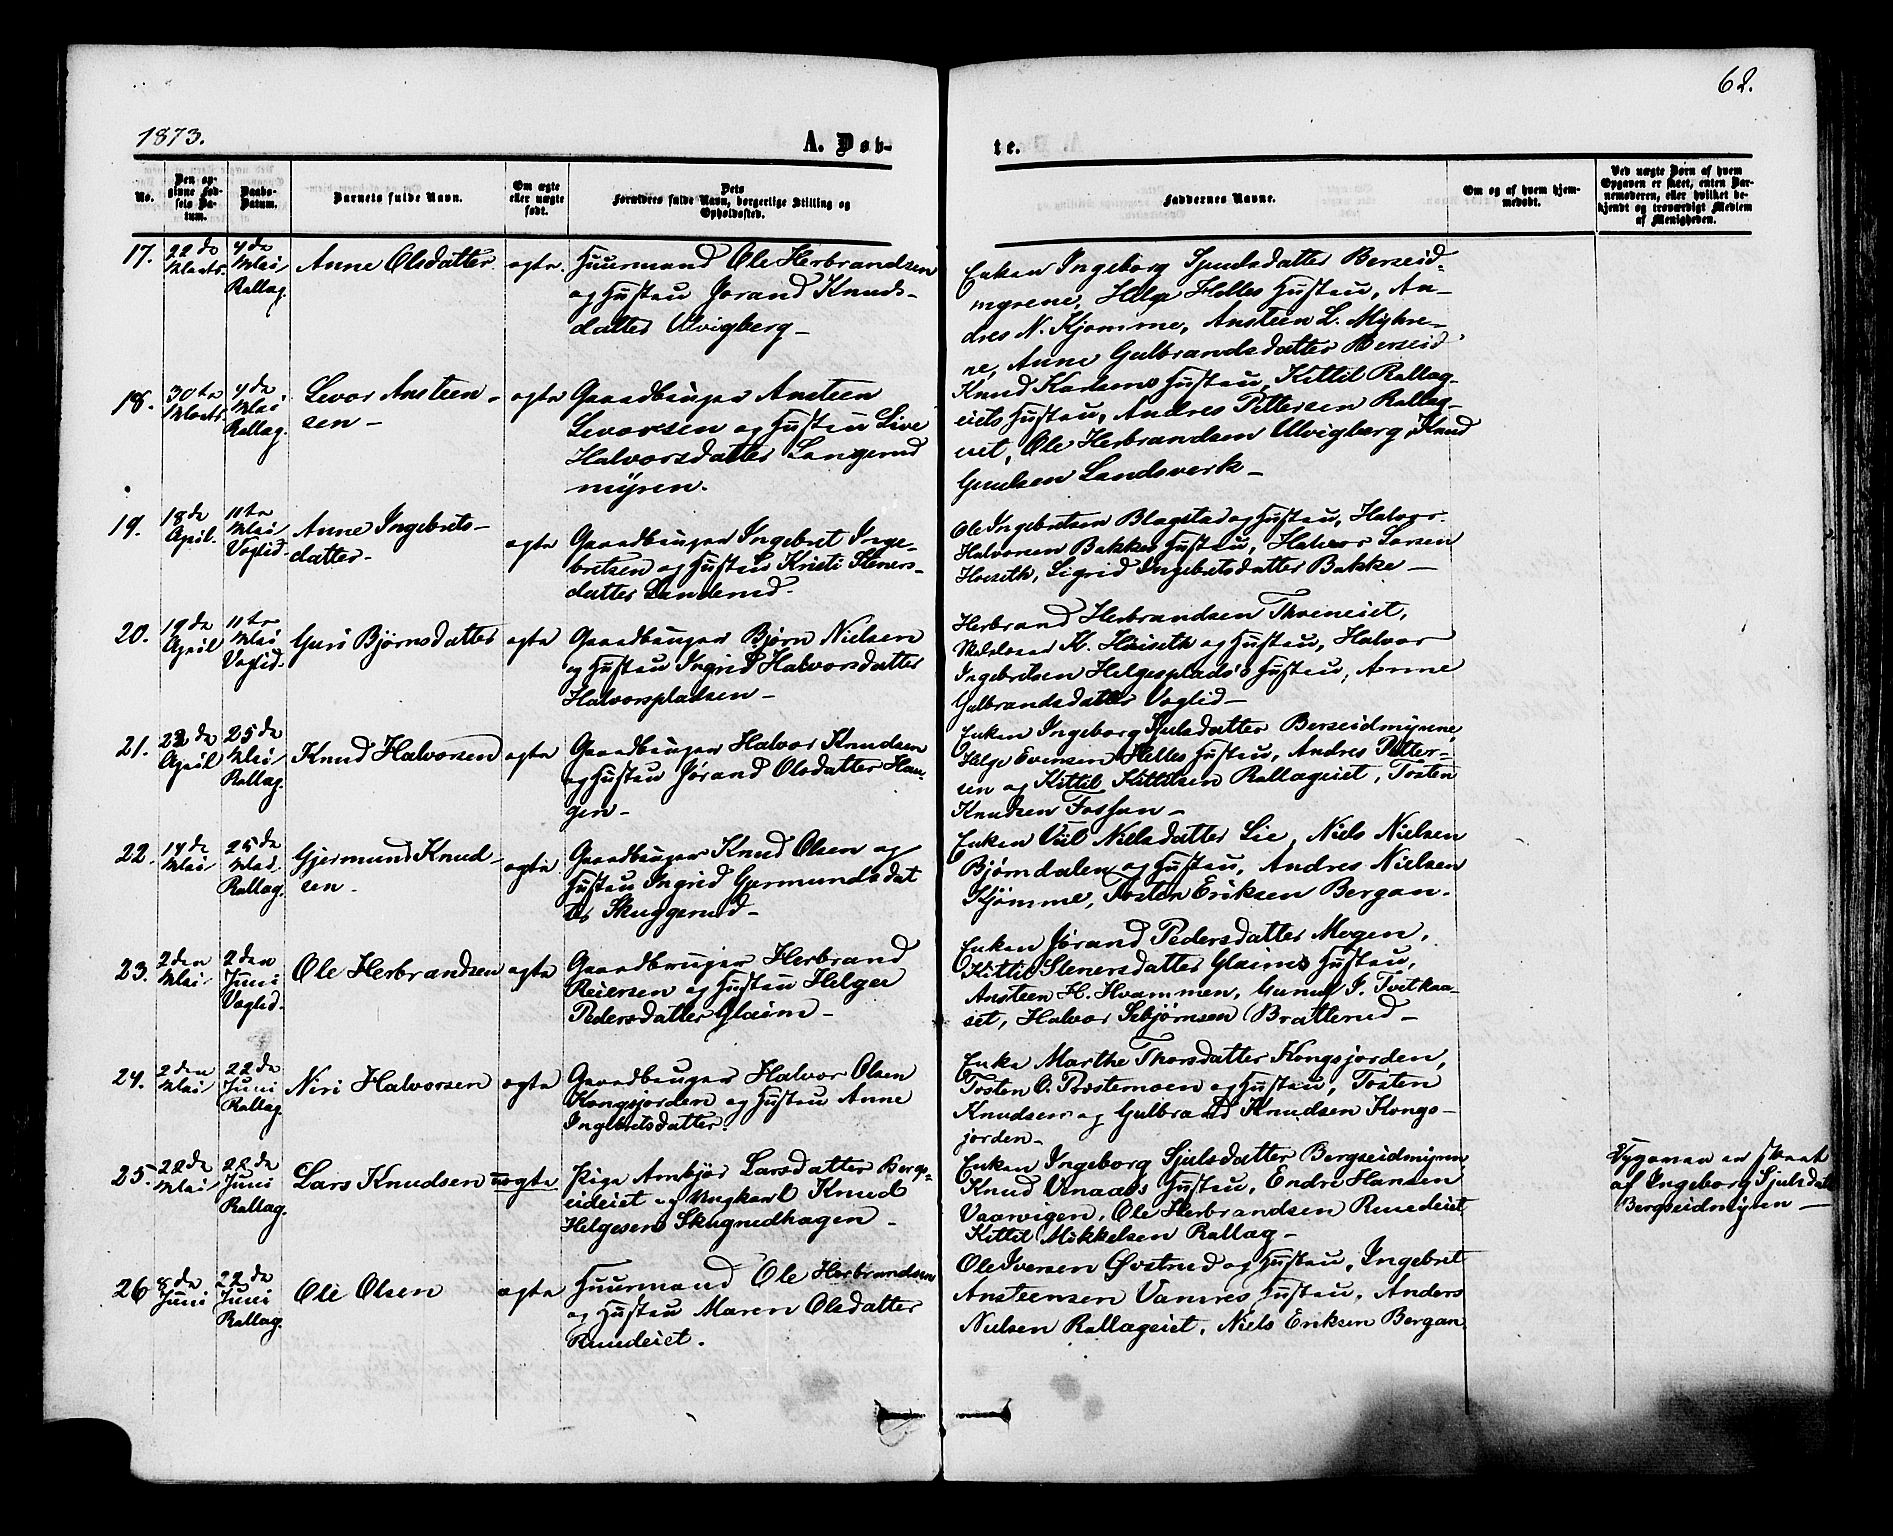 62.
1873.
A. Døb-
te.
No.
Den opgivne Fødsels Datum.
Daabs-Datum.
Barnets fulde Navn.
Om ægte eller uægte født.
Dets Forældres fulde Navn, borgerlige Stilling og Opholdssted.
Faddernes Navne.
Om og af hvem hjemmedøbt.
Ved uægte Børn af hvem Opgaven er skeet, enten Barnemoderen, eller hvilket bekjendt og troværdigt Medlem af Menigheden.
17.
22de
Marts
4de
Mai
Rollag.
Anne Olsdatter
ægte
Huusmand Ole Herbrandsen
og Hustru Jørand Knuds-
datter Ulvigberg –
Enken Ingeborg Sjulsdatter Berseid-
myrene, Helge Helles Hustru, An-
dres N. Kjømme, Ansteen L. Myhre-
ne, Anne Gulbrandsdatter Berseid
18.
30te
Marts
4de
Mai
Rollag.
Levor Ansteen-
sen –
ægte
Gaardbruger Ansteen
Levorsen og Hustru Live
Halvorsdatter Langerud
myren.
Knud Karlsens Hustru, Kittil Rollag-
eiets Hustru, Andres Pettersen Rollag-
eiet, Ole Herbrandsen Ulvigberg, Knud
Gundsen Landsverk –
19.
18de
April.
11te
Mai
Veglid.
Anne Ingebrets-
datter –
ægte
Gaardbruger Ingebret Inge-
bretsen og Hustru Kristi Steners-
datter Landerud.
Ole Ingebretsen Blagstad og Hustru, Halvor
Halvorsen Bakkes Hustru, Halvor Larsen
Hoiseth, Sigrid Ingebretsdatter Bakke –
20.
19de
April
11te
Mai
Veglid.
Guri Bjørnsdatter
ægte
Gaardbruger Bjørn Nielsen
og Hustru Ingrid Halvorsdatter
Halvorspladsen –
Herbrand Herbrandsen Thveneiet,
K. Hoiseth og Hustru, Halvor
Ingebretsen Helgesplads's Hustru, Anne
Gulbrandsdatter Veglid –
21.
23de
April
25de
Mai
Rollag.
Knud Halvorsen
ægte
Gaardbruger Halvor Knudsen
og Hustru Jørand Olsdatter Hau-
gen –
Enken Ingeborg Sjulsdatter Berseidmyrene,
Helge Evensen Helles Hustru, Andres Petter-
sen og Kittil Kittilsen Rollageiet, Tosten
Knudsen Fosshan –
22.
14de
Mai
25de
Mai
Rollag.
Gjermund Knud-
sen –
ægte
Gaardbruger Knud Olsen og
Hustru Ingrid Gjermundsdat
ter Skuggerud –
Enken Viil Nielsdatter Lie, Niels Nielsen
Bjørndalen og Hustru, Andres Nielsen
Kjømme, Tosten Eriksen Bergan.
23.
2den
Mai
2den
Juni
Veglid.
Ole Herbrandsen
ægte
Gaardbruger Herbrand
Reiersen og Hustru Helgee
Pedersdatter Glaim –
Enken Jørand Pedersdatter Mogen,
Kittil Stenersdatter Glaims Hustru,
Ansteen H. Hvammen, Gunulf J. Tveitkaa-
set, Halvor Sebjørnsen Bratterud –
24.
2den
Mai
22de
Juni
Rollag
Niri Halvorsen
ægte
Gaardbruger Halvor Olsen
Kongsjorden og Hustru Anne
Ingebretsdatter.
Enke Marthe Thorsdatter Kongsjorden,
Tosten O. Prestemoen og Hustru, Tosten
Knudsen og Gulbrand Knudsen Kongs-
jorden –
25.
22de
Mai
22de
Juni
Rollag.
Lars Knudsen
uægte
Pige Arnbjør Larsdatter Bergs-
eideiet og Ungkarl Knud
Helgesen Skugrudhagen –
Enken Ingeborg Sjulsdatter Bergseidmyren,
Knud Vinaaes Hustru, Endre Hansen
Vaarvigen, Ole Herbrandsen Rendeiet
Kittil Mikkelsen Rollag –
er skeet
af Ingeborg Sjulsdatt
Bergseidmyren –
26
8de
Juni
22de
Juni
Rollag.
Ole Olsen
ægte
Huusmand Ole Herbrandsen
og Hustru Maren Olsdatter
Rendeiet.
Ole Iversen Østrud og Hustru, Ingebret
Ansteensen Vamres Hustru, Anders
Nielsen Rollageiet, Niels Eriksen Bergan.